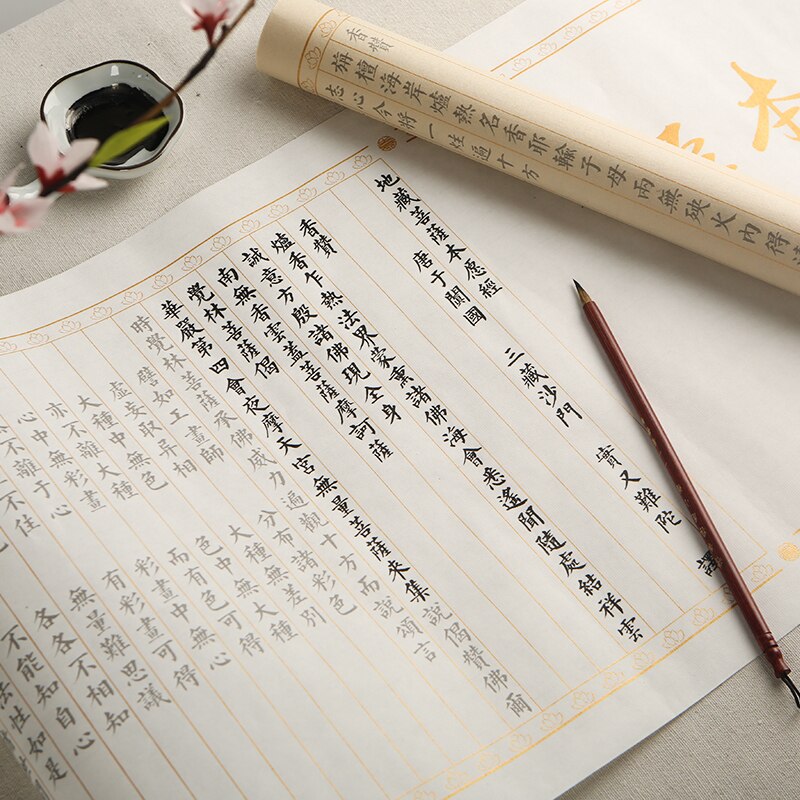 香讚
旃檀海岸爐熱名香耶輸子母兩無殃火內得
志心今將一炷遍十方
本
地藏菩薩本愿經
唐于闐國 三藏沙門 實又難陀 譯
香讚
爐香乍熱法界蒙熏諸佛海會悉遙聞隨處結祥雲
誠意方殷諸佛現全身
南無香雲蓋菩薩摩訶薩
覺林菩薩偈
華嚴第四會夜摩天宮無量菩薩來集說偈贊佛爾
時覺林菩薩承佛威力遍觀十方而說頌言
譬如工畫師 分布諸彩色
虛妄取異相 大種無差別
大種中無色 色中無大種
亦不離大種 而有色可得
心中無彩畫 彩畫中無心
不離于心 有彩畫可得
不住 無量難思議
各各不相知
不能知自心
法性如是